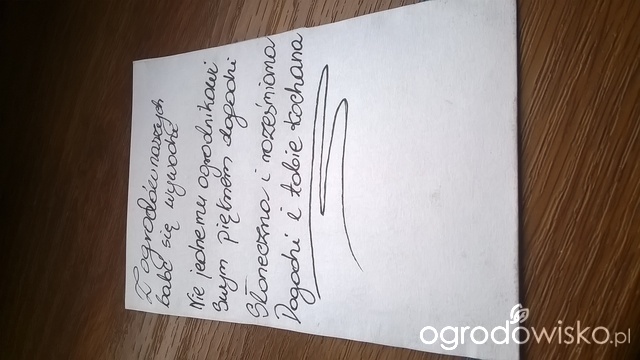 Z ogrodów naszych
babć się wywodzi
Nie jednemu ogrodnikowi
swym pięknem dogodzi
Słoneczna i roześmiana
Dogodzi i tobie kochana
ogrodowisko.pl